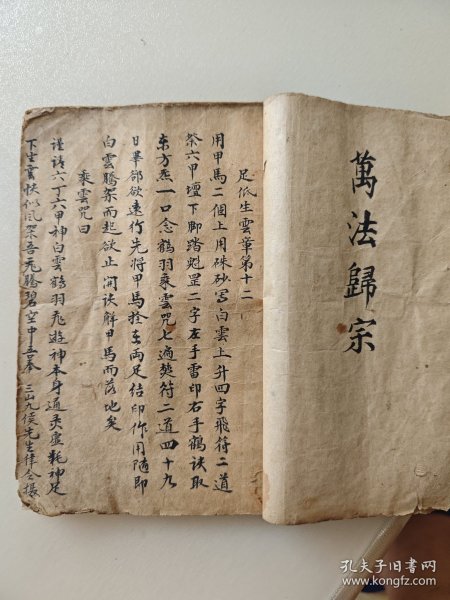 萬法歸宗
足低生雲章第十二
用甲馬二個上用硃砂写白雲上升四字飛符二道
祭六甲壇下脚踏魁罡二字左手雷印右手鶴訣取
東方炁一口念鶴羽乘雲咒七遍焚符二道四十九
日畢卻欲遠行先將甲馬拴在両足结印作用隨即
白雲騰架而起欲止開訣解甲馬而落地矣
乘雲咒曰
謹請六丁六甲神白雲鶴羽飛遊神本身通灵虛耗神足
下生雲快似風架吾飛騰碧空中吾奉三山九侯先生律令攝
孔夫子旧书网
www.kongfz.com